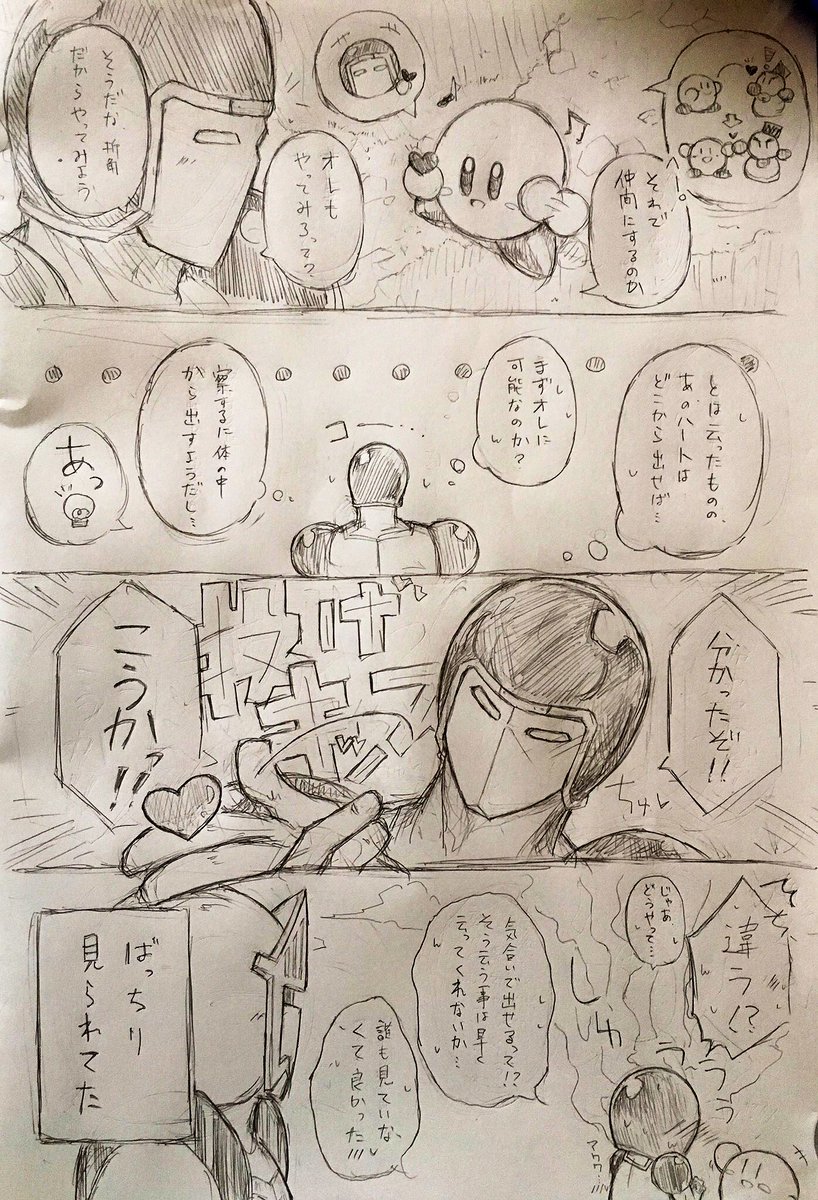 へー。
それで
仲間にするのか
オレも
やってみろって?
そうだな、折角
だからやってみよう
とは云ったものの、
あのハートは
どこから出せば…
まずオレに
可能なのか?
コー…
察するに体の中
から出すようだし…
あっ
分かったぞ!!
ちゅ
投げ
キッス
こうか?!!
違う!?
じゃあ
どうやって…
気合いで出せるって!?
そう云う事は早く
云ってくれないか…
誰も見ていな
くて良かった!!!
ううう
アワワ…
ばっちり
見られてた